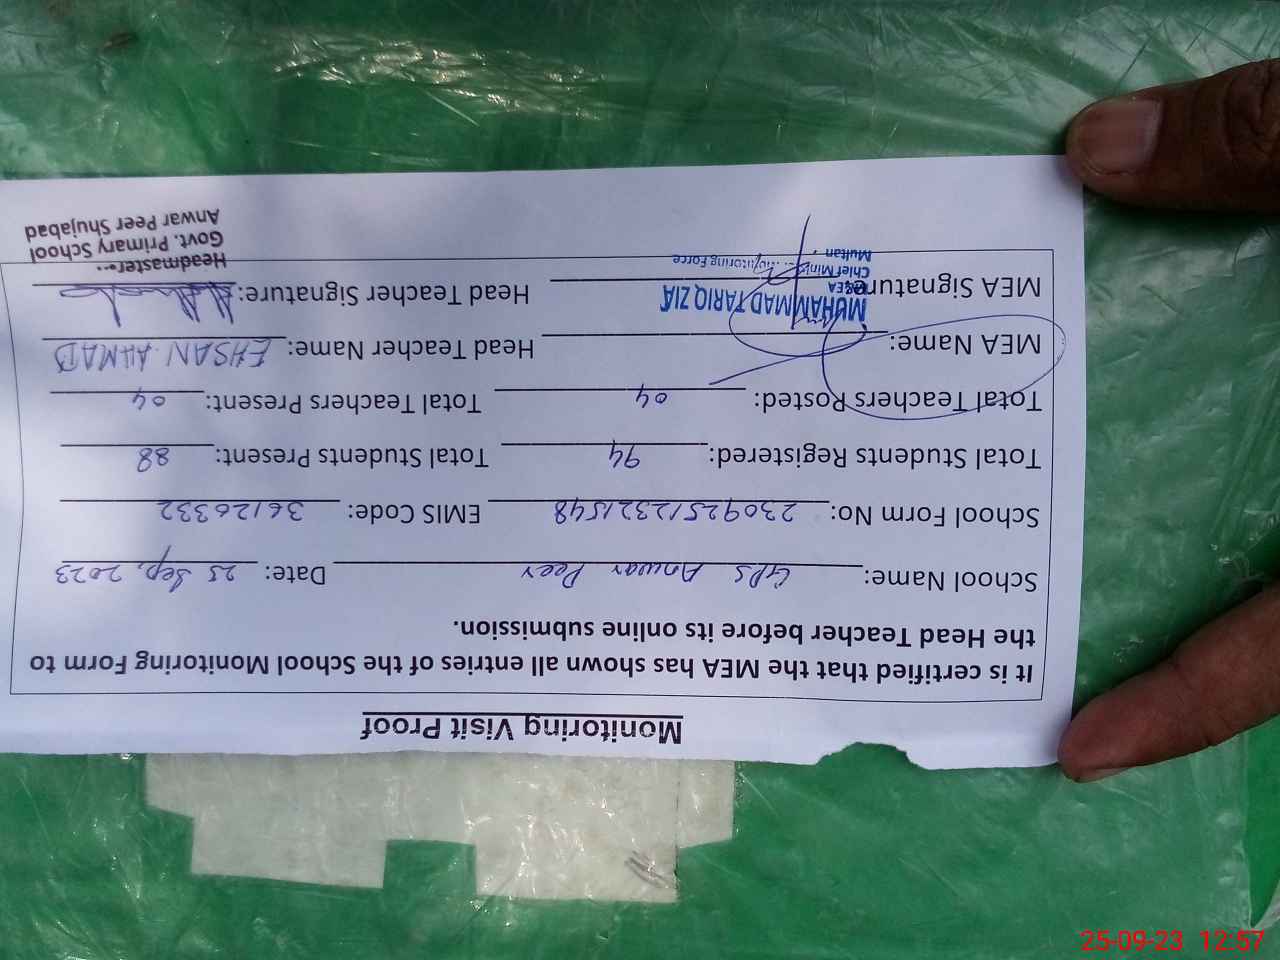 Monitoring Visit Proof
It is certified that the MEA has shown all entries of the School Monitoring Form to
the Head Teacher before its online submission.
School Name: GPS Anwar Peer Date: 25 Sep, 2023
School Form No: 23092512321548 EMIS Code: 36126332
Total Students Registered: 94 Total Students Present: 88
Total Teachers Posted: 04 Total Teachers Present: 04
MEA Name: Head Teacher Name: EHSAN AHMAD
MUHAMMAD TARIQ ZIA
MEA
MEA Signature: Head Teacher Signature:
Chief Monitoring Force
Multan
Headmaster
Govt. Primary School
Anwar Peer Shujabad
25-09-23 12:57